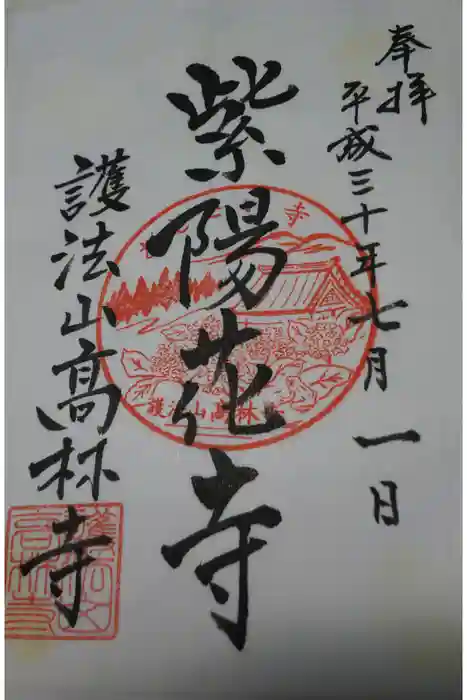 奉拝
平成三十年七月一日
紫陽花寺
護法山高林寺
寺
護法山高林寺